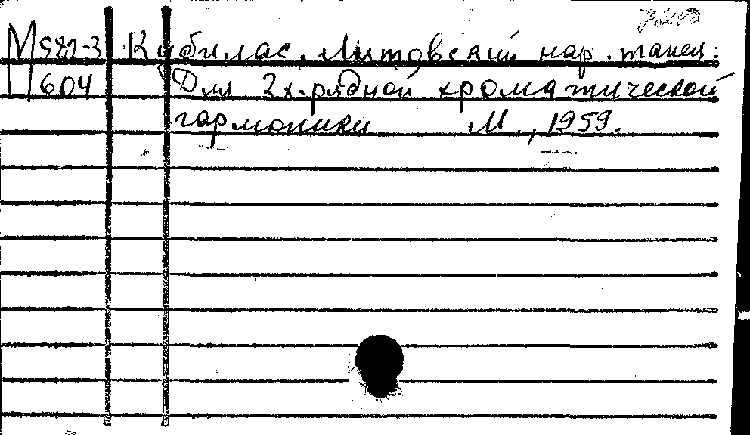 М582-3 Кубилас. Литовский нар. танец.
П604 Для 2х-рядной хроматической
гармоники М., 1959.